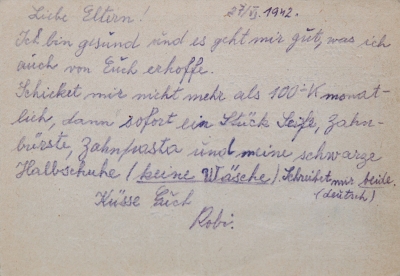 Liebe Eltern! 27/VI. 1942.
Ich bin gesund und es geht mir gut, was ich
auch von Euch erhoffe.
Schicket mir nicht mehr als 100 K monat-
lich, dann sofort ein Stück Seife, Zahn-
bürste, Zahnpasta und meine schwarze
Halbschuhe (keine Wäsche). Schreibet mir beide.
(deutsch)
Küsse Euch
Robi.